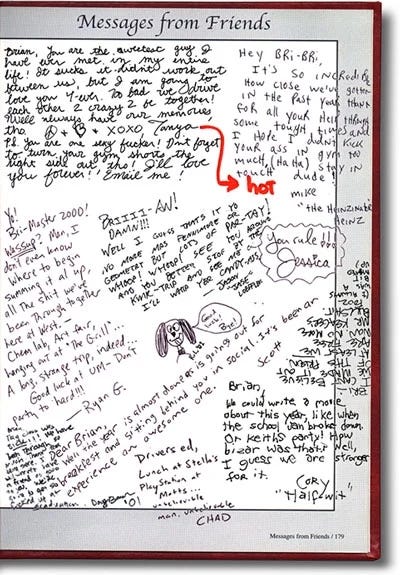 Messages from Friends
Brian, You are the sweetest guy I
have ever met in my entire
life! It sucks it didn't work out
between us but I am going to
love you 4-ever. To bad we drive
each other 2 crazy 2 be together!
We'll always have our memories
tho. + B = XOXO, Tanya
P.S you are one sexy fucker! Don't forget
to turn your gym shorts the
right side out tho! I'll love
you forever!! Email me!
hot
HEY BRi-BRi,
IT's So INCREDIBLE
How close we've gotten
in the past year. Thanx
for all your Help through
some tough times and
I Hope I didn't kick
your ass in gym too
much, (Ha Ha) Stay in
touch dude!
mike
"THE HEINZINATOR"
HEINZ
Yo!
Bri-Master 2000!
Wassup? Man, I
don't even know
where to begin
summing it all up,
all the shit we've
been through together
here at West.
Chem lab, Art fair,
hanging out at "The Grill"...
A long, strange trip, indeed...
Good luck at UM - Don't
party to hard!!!
— Ryan G.
BRIIII-AN!
DAMN!!!
WELL I GUESS THAT'S IT YO
NO MORE MRS FENNIMORE OR
GEOMETRY BUT LOTS OF PAR-TAY!
WHOOP! WHOOP! SEE YOU AROUND
AND YOU BETTER STOP BY THE
KWIK-TRIP AND SEE ME OR
I'LL WHIP YOU CANDY-ASS
— JASON
You rule!!!
Jessica
Good luck
Bri!
Dear Brian,
Well the year is almost done as is going out for
breakfast and sitting behind you in social. It's been an
experience an awesome one.
Scott
Brian,
We could write a movie
about this year, like when
the school van broke down.
Or Keiths party! How
bizar was that? Well,
I guess we are stranger
for it.
Cory
"Halfwit"
Drivers ed,
Lunch at Stella's
PlayStation at
Matts...
unbelievable
man, unbelievable
CHAD
graduation.
'01
Messages from Friends / 179